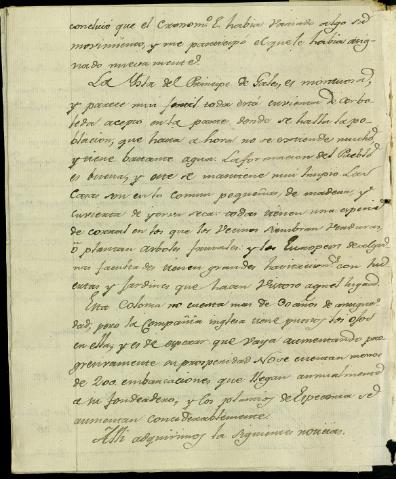 concluio que el Cronom.º E. habia variado algo su
movimiento, y me participó el que le habia asig-
nado nuevamente.
La Ysla del Principe de Gales, es montuosa,
y parece mui fertil toda está cubierta de arbo-
leda acepto en la parte donde se halla la po-
blacion, que hasta ahora no se extiende mucho,
y tiene bastante agua. La formacion del Pueblo
es buena, y este se mantiene mui limpio Las
Casas son en lo comun pequeñas, de madera, y
cuvierta de yerva seca: todas tienen una especie
de corral en los que los Vecinos siembran verduras,
ò plantan arboles frutales: y los Europeos de algu-
nas facultades tienen grandes havitaciones con hu-
ertas y Jardines que hacen vistoso aquel lugar.
Esta Colonia no cuenta mas de 30 años de antigue-
dad, pero la Compañia inglesa tiene puestos los ojos
en ella, y es de esperar que vaya aumentando pro-
gresivamente en prosperidad No se cuentan menos
de 200 embarcaciones que llegan annualmente
a su fondeadero, y los plantíos de Especería se
aumentan considerablemente.
Alli adquirimos la siguientes noticias.